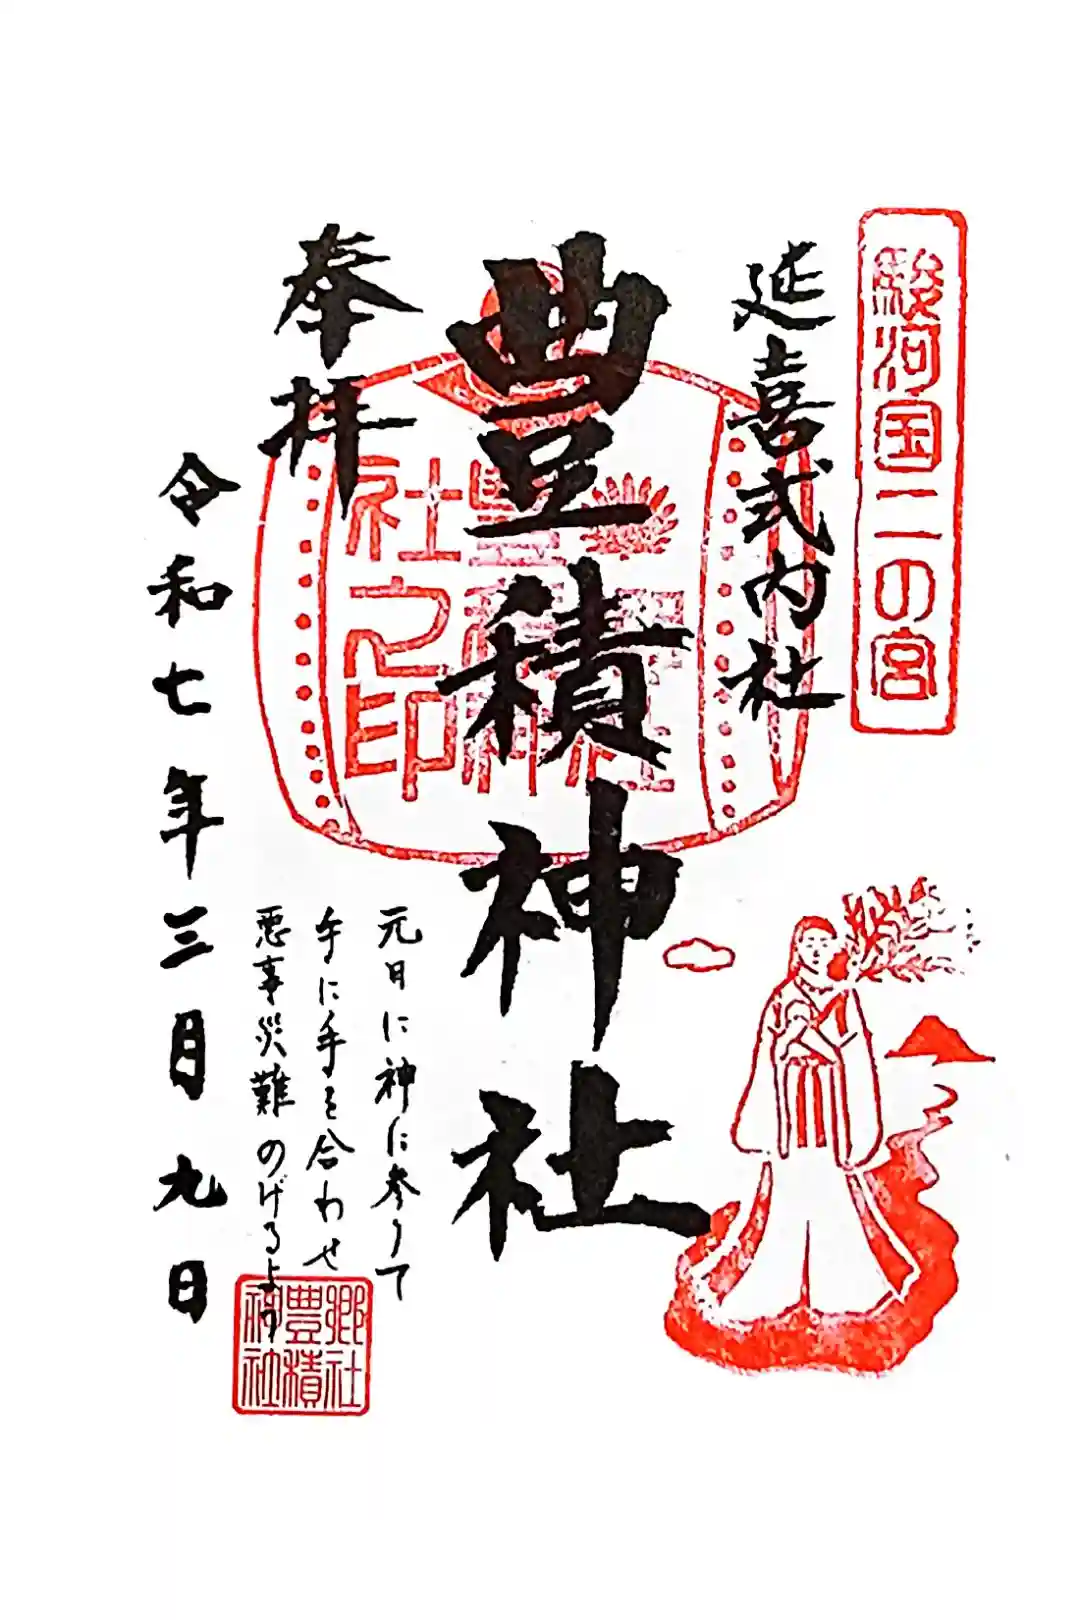 駿河国二の宮
延喜式内社
豊積神社
奉拝
令和七年三月九日
元日に神に参りて
手に手を合わせ
悪事災難のげるより
郷社
豊積
神社
社之印